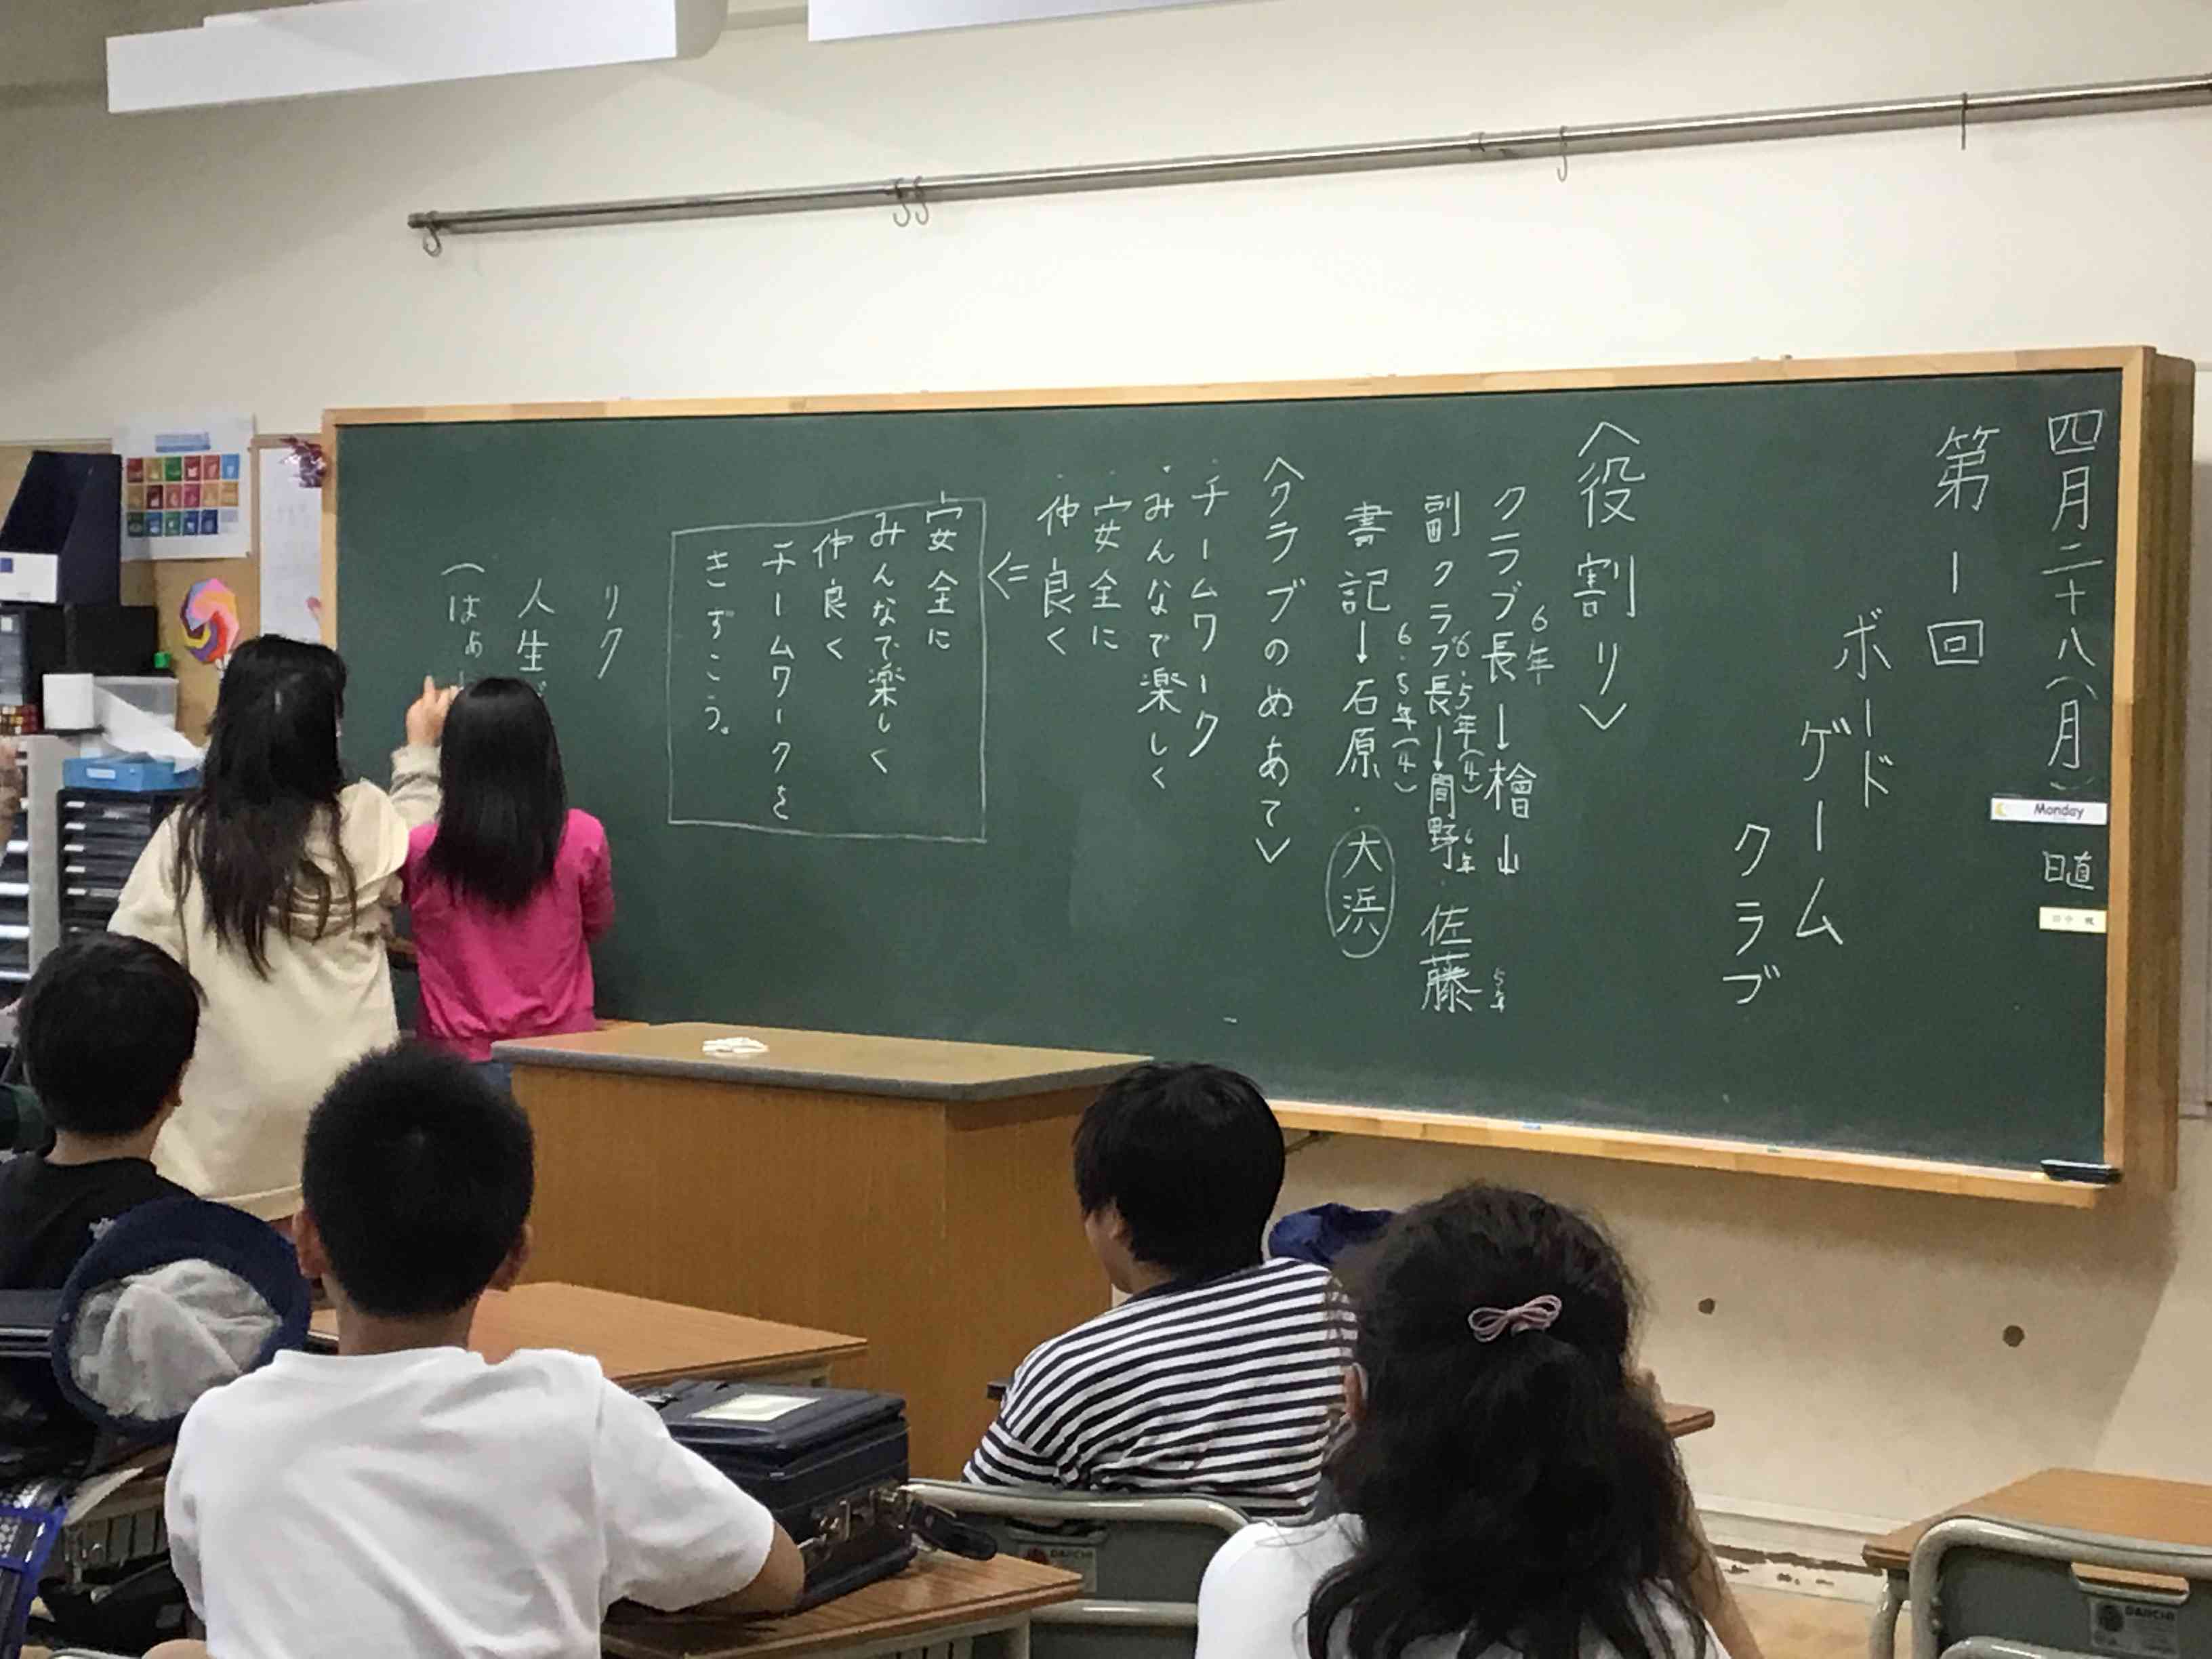 四月二十八(月)
Monday
日直
第1回
ボード
ゲーム
クラブ
〈役割り〉
6年
クラブ長→檜山
6・5年(4)
副クラブ長→間野 6年・佐藤 5年
6・5年(4)
書記→石原・大浜
〈クラブのめあて〉
・チームワーク
・みんなで楽しく
・安全に
・仲良く
⇓
安全に
みんなで楽しく
仲良く
チームワークを
きずこう。
リク
人生
DAIICHI
DAIICHI